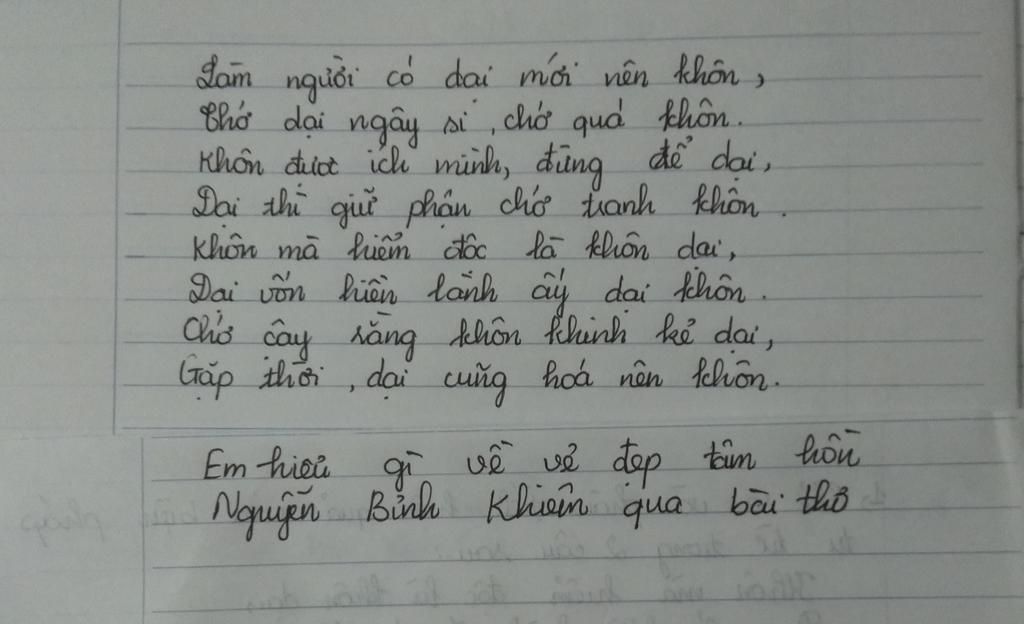 Làm người có dại mới nên khôn,
Chớ dại ngây si, chớ quá khôn.
Khôn được ích mình, đừng để dại,
Dại thì giữ phận chớ tranh khôn.
Khôn mà hiểm độc là khôn dại,
Dại vốn hiền lành ấy dại khôn.
Chớ cậy rằng khôn khinh kẻ dại,
Gặp thời, dại cũng hoá nên khôn.
Em hiểu gì về vẻ đẹp tâm hồn
Nguyễn Bỉnh Khiêm qua bài thơ